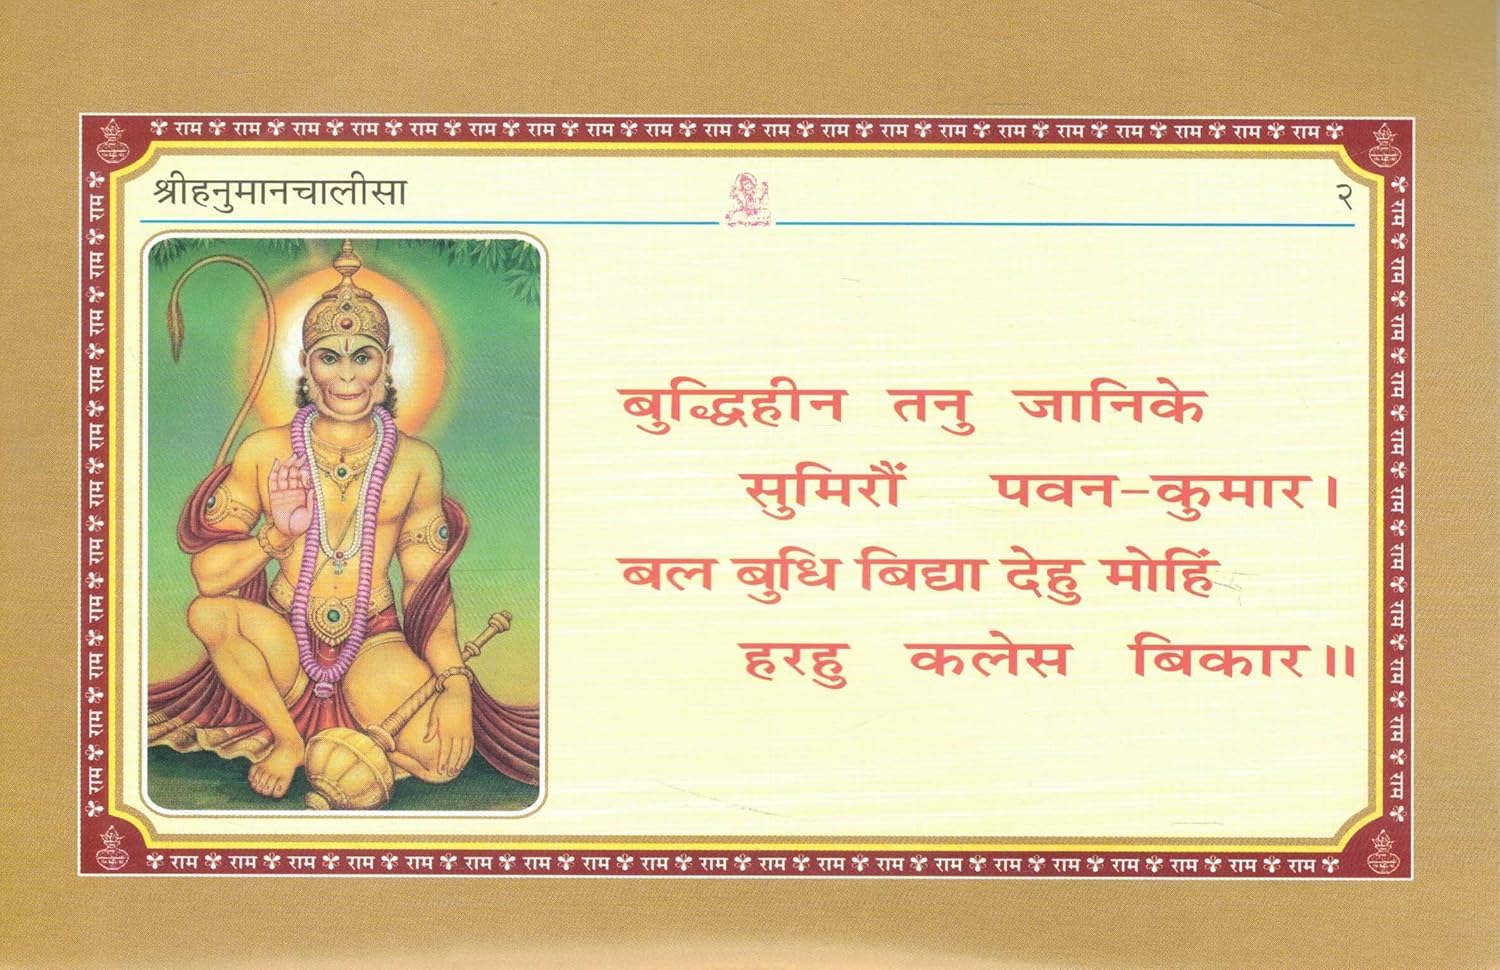 राम राम राम राम राम राम राम राम राम राम राम राम राम राम राम राम राम राम राम राम
श्रीहनुमानचालीसा २
बुद्धिहीन तनु जानिके
सुमिरौं पवन-कुमार।
बल बुधि बिद्या देहु मोहिं
हरहु कलेस बिकार॥
राम राम राम राम राम राम राम राम राम राम राम
राम राम राम राम राम राम राम राम राम राम राम
राम राम राम राम राम राम राम राम राम राम राम राम राम राम राम राम राम राम राम राम